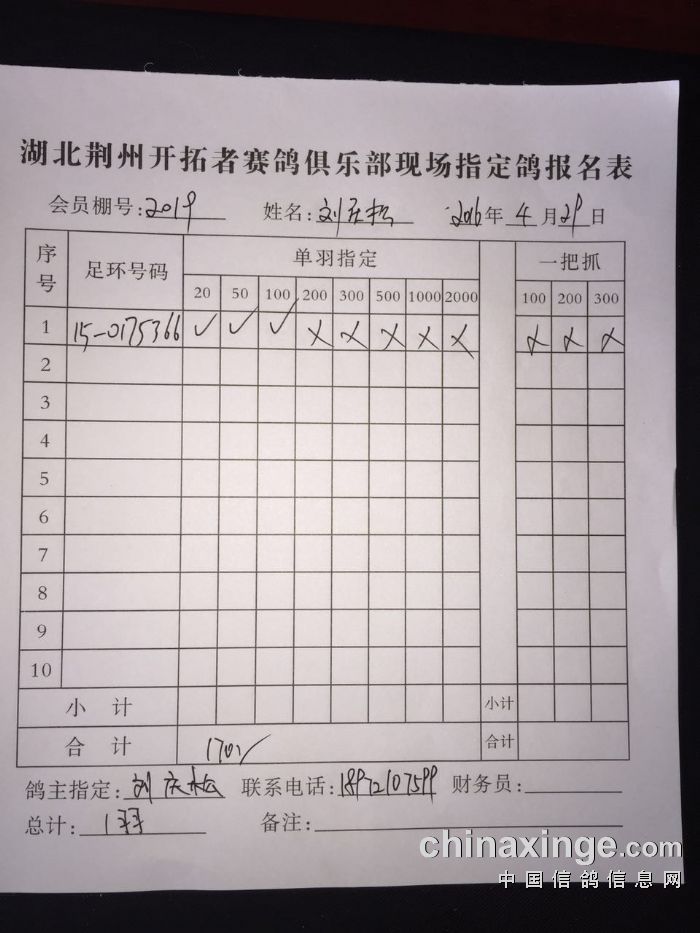 湖北荆州开拓者赛鸽俱乐部现场指定鸽报名表
会员棚号:2019 姓名:刘庆松 2016年4月29日
序号 足环号码 单羽指定 一把抓
20 50 100 200 300 500 1000 2000 100 200 300
1 15-0175366 ✓ ✓ ✓ × × × × × × × ×
2
3
4
5
6
7
8
9
10
小计 小计
合计 170 合计
鸽主指定:刘庆松 联系电话:18972107599 财务员:
总计:1羽 备注:
chinaxinge.com
中国信鸽信息网